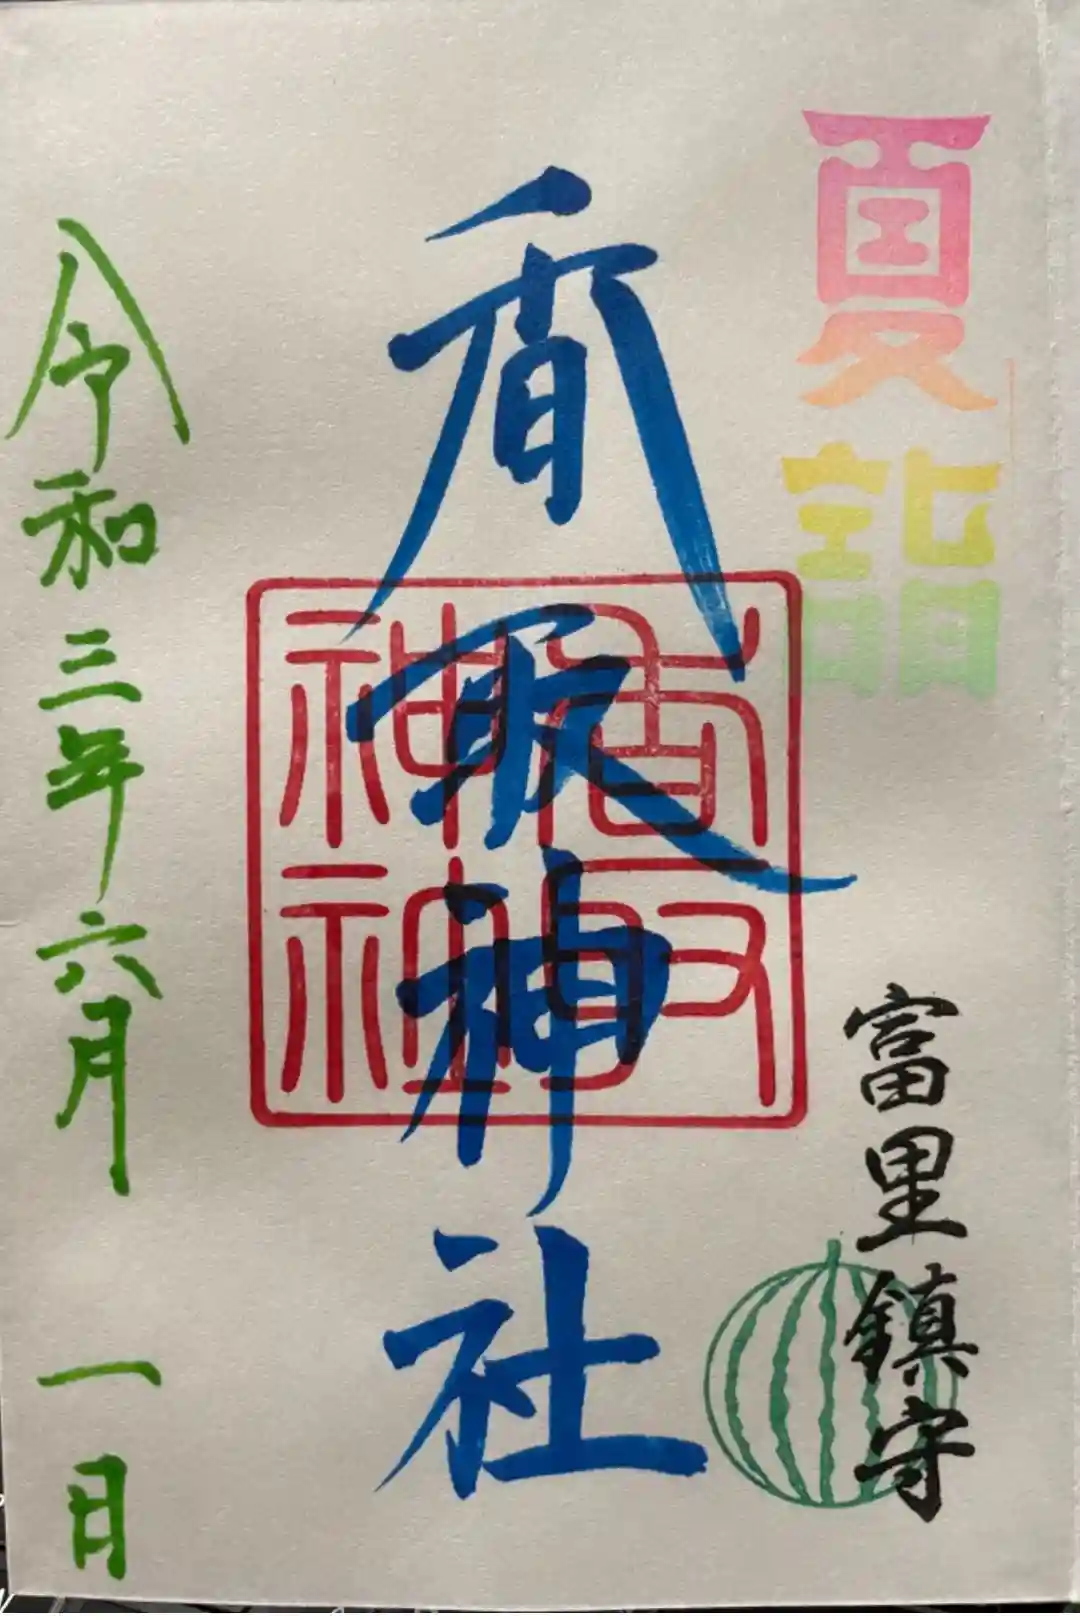 夏詣
富里鎮守
香取神社
香取
神社
令和三年六月一日